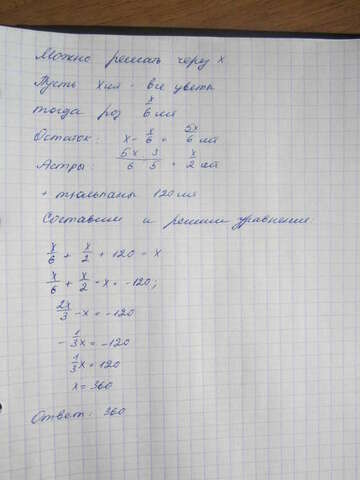 Можно решать через x
Пусть x шт - все цветы
тогда роз x/6 шт
Остаток: x - x/6 = 5x/6 шт
Астры: 5x/6 · 3/5 = x/2 шт
+ тюльпаны 120 шт
Составим и решим уравнение:
x/6 + x/2 + 120 = x
x/6 + x/2 - x = -120;
2x/3 - x = -120
-1/3x = -120
1/3x = 120
x = 360
Ответ: 360